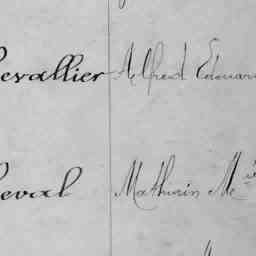 evallier Alfred Edouar
eval Mathurin Me